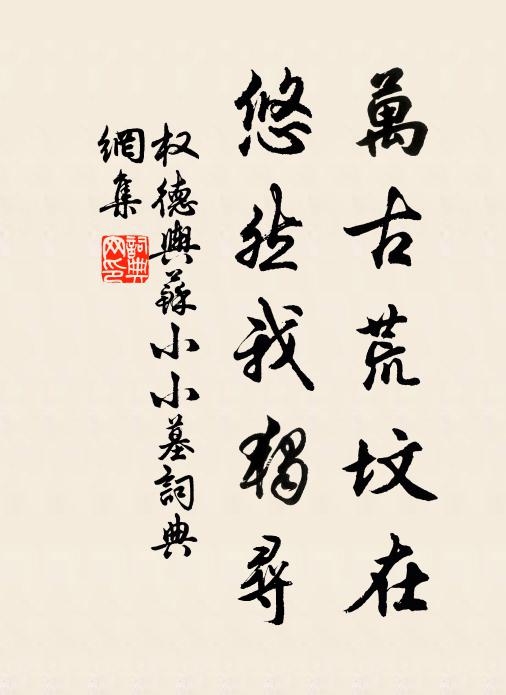 萬古荒坟在
悠然我獨尋
权德輿蘇小小墓詞典
網集
詞典
网印